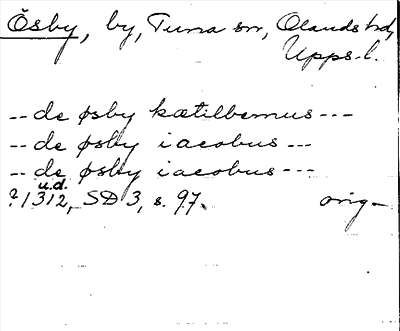 Ösby, by, Tuna sn, Olands hd,
Upps. l.
-- de øsby kætilbernus ---
-- de øsby iacobus ---
-- de øsby iacobus ---
u.d.
? 1312, SD 3, s. 97.   orig-